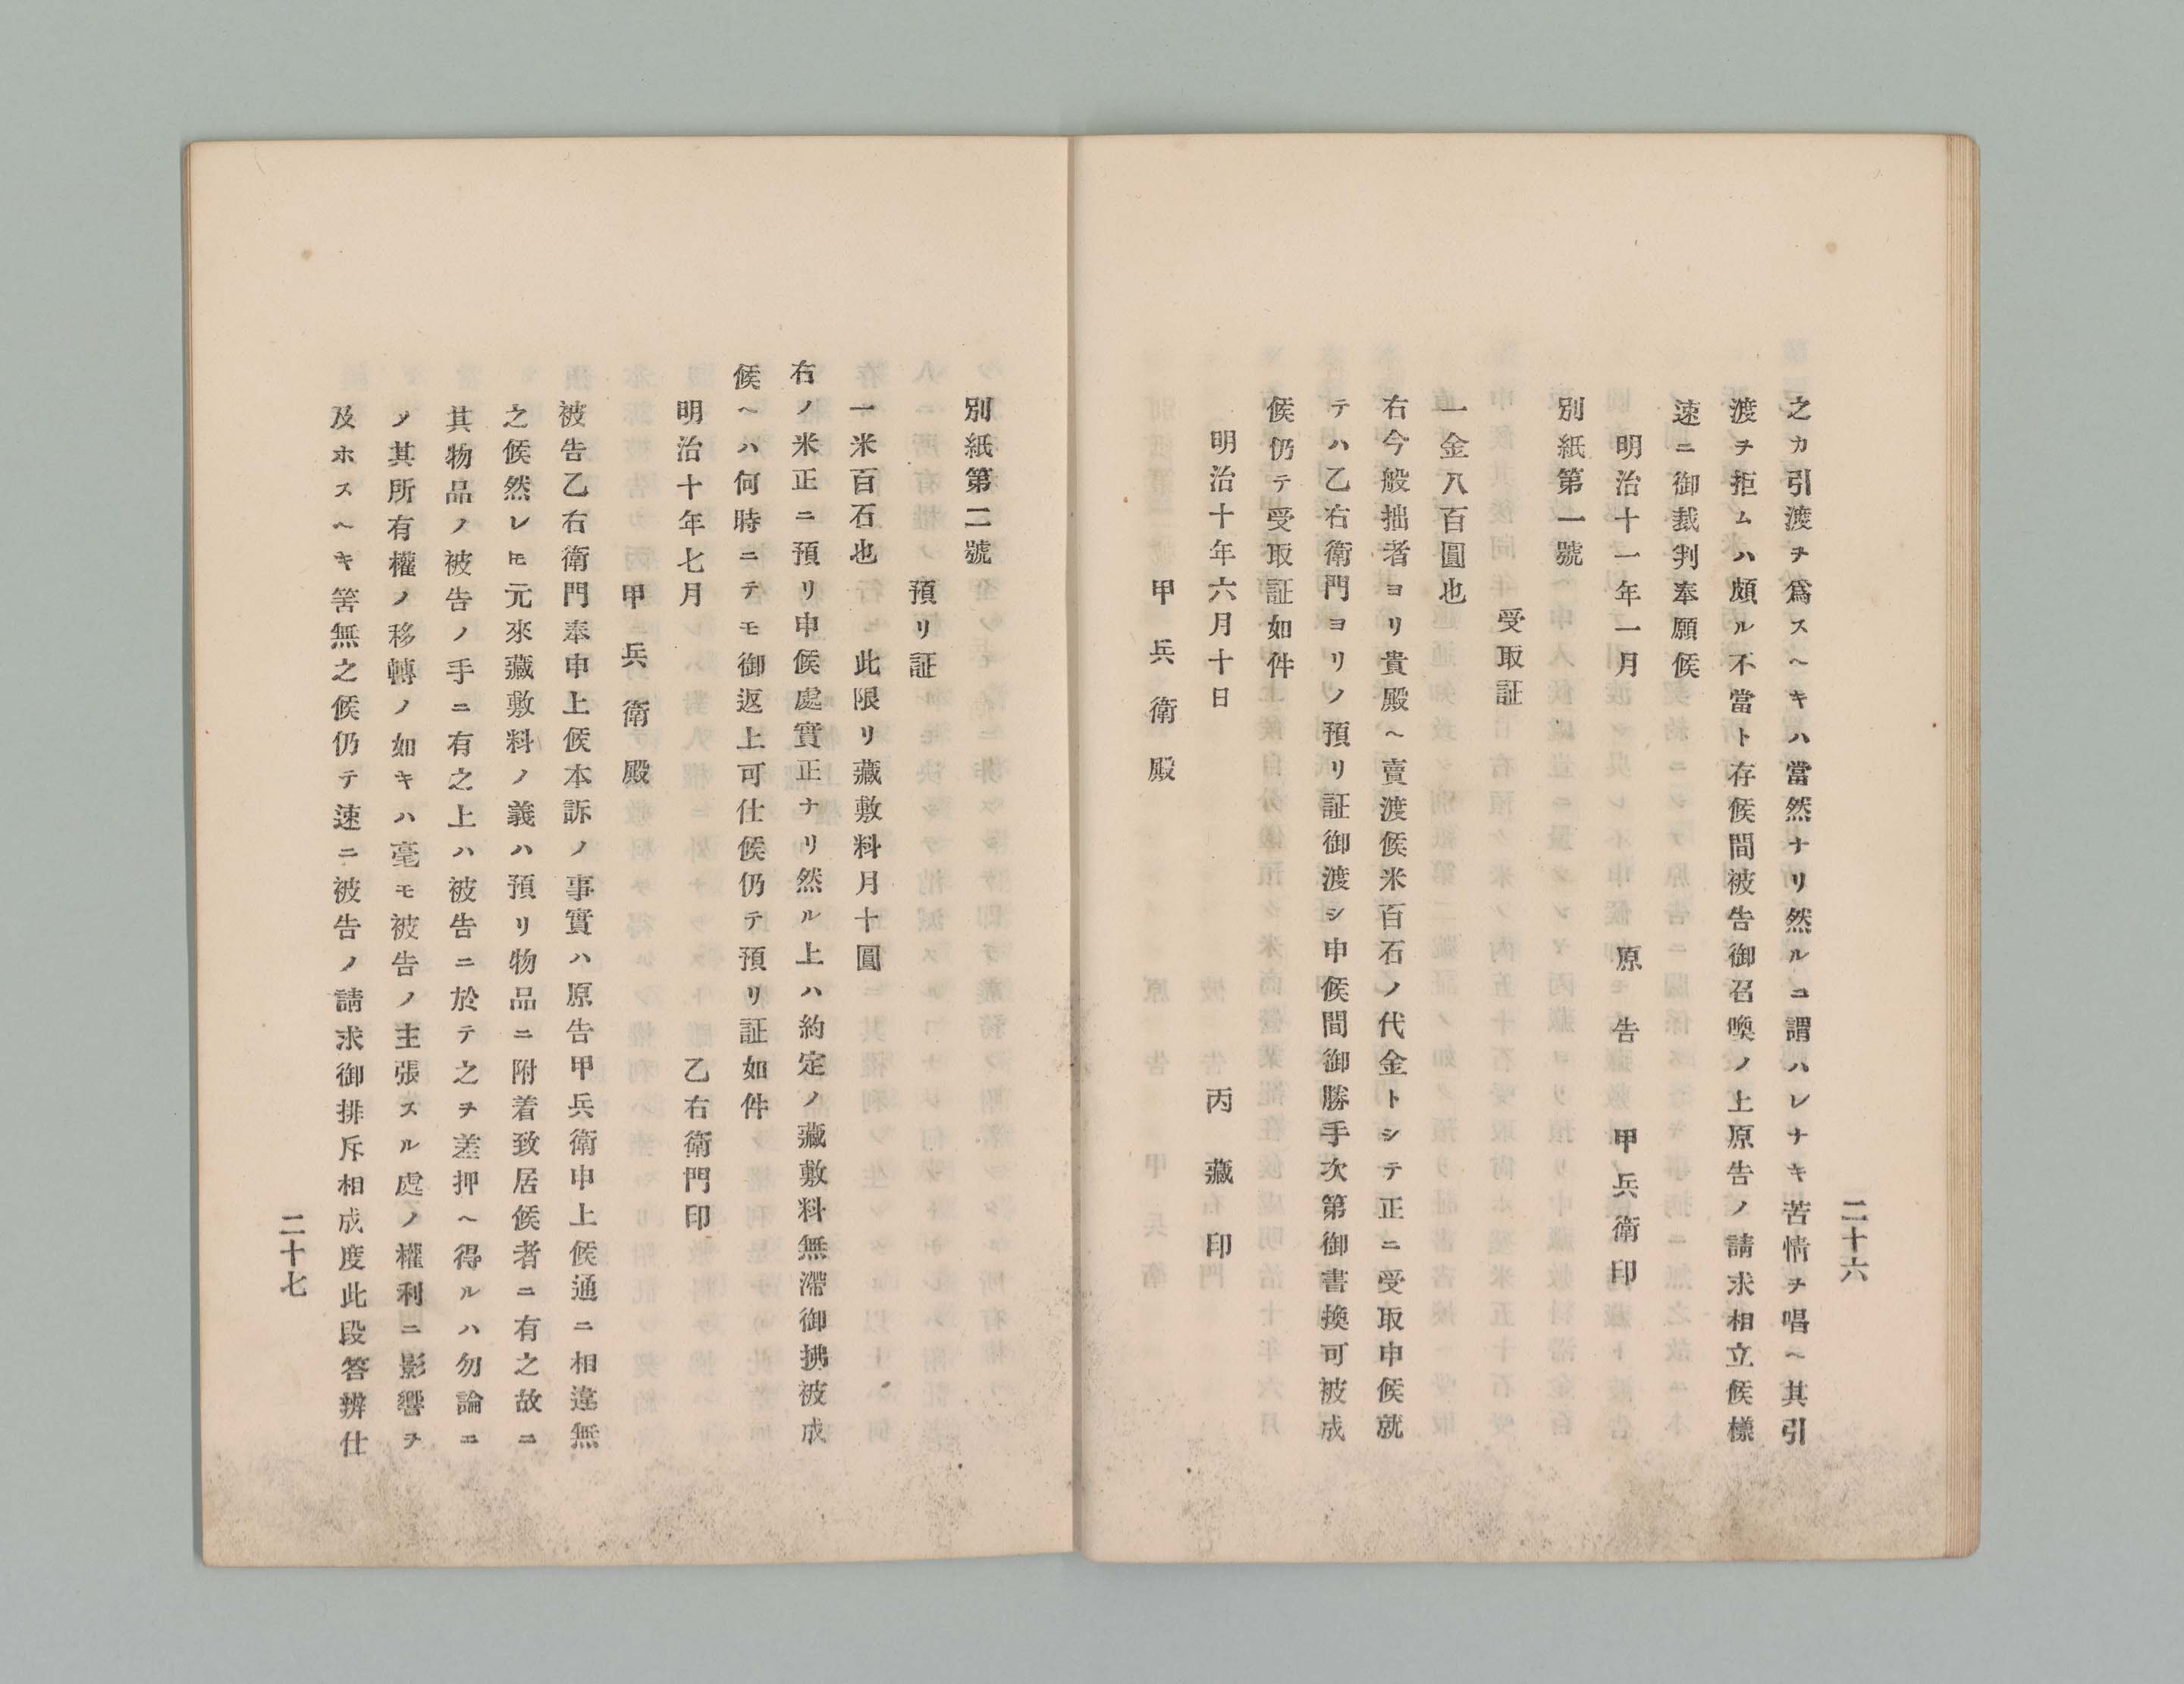 二十六
之カ引渡ヲ爲スヘキハ當然ナリ然ルヿ謂ハレナキ苦情ヲ唱ヘ其引
渡ヲ拒ムハ頗ル不當ト存候間被告御召喚ノ上原告ノ請求相立候樣
速ニ御裁判奉願候
明治十一年一月 原告 甲兵衛印
別紙第一號
受取証
一金八百圓也
右今般拙者ヨリ貴殿ヘ賣渡候米百石ノ代金トシテ正ニ受取申候就
テハ乙右衛門ヨリノ預リ証御渡シ申候間御勝手次第御書換可被成
候仍テ受取証如件
明治十年六月十日 丙藏印
甲兵衛殿
別紙第二號
預リ証
一米百石也 此限リ藏敷料月十圓
右ノ米正ニ預リ申候處實正ナリ然ル上ハ約定ノ藏敷料無滯御拂被成
候ヘハ何時ニテモ御返上可仕候仍テ預リ証如件
明治十年七月 乙右衛門印
甲兵衛殿
被告乙右衛門奉申上候本訴ノ事實ハ原告甲兵衛申上候通ニ相違無
之候然レ𪜈元來藏敷料ノ義ハ預リ物品ニ附着致居候者ニ有之故ニ
其物品ノ被告ノ手ニ有之上ハ被告ニ於テ之ヲ差押ヘ得ルハ勿論ニ
〆其所有權ノ移轉ノ如キハ毫モ被告ノ主張スル處ノ權利ニ影響ヲ
及ホスヘキ筈無之候仍テ速ニ被告ノ請求御排斥相成度此段答辨仕
二十七